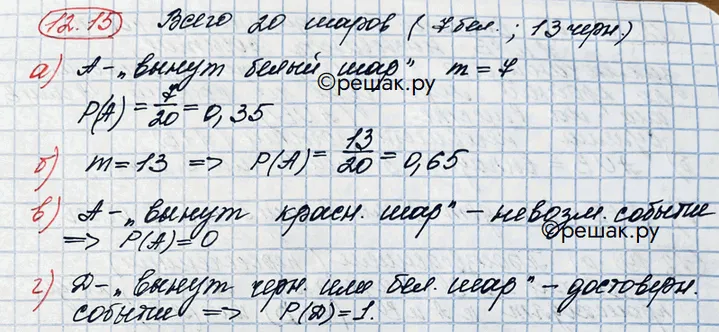 12.15 Всего 20 шаров (7 бел. ; 13 черн.)
а) А – „вынут белый шар" m = 7
©решак.ру
P(A) = 7/20 = 0,35
б) m = 13 => P(A) = 13/20 = 0,65
в) А – „вынут красн. шар" – невозм. событие
=> P(A) = 0
©решак.ру
г) Д – „вынут черн. или бел. шар" – достоверн.
событие => P(Д) = 1.